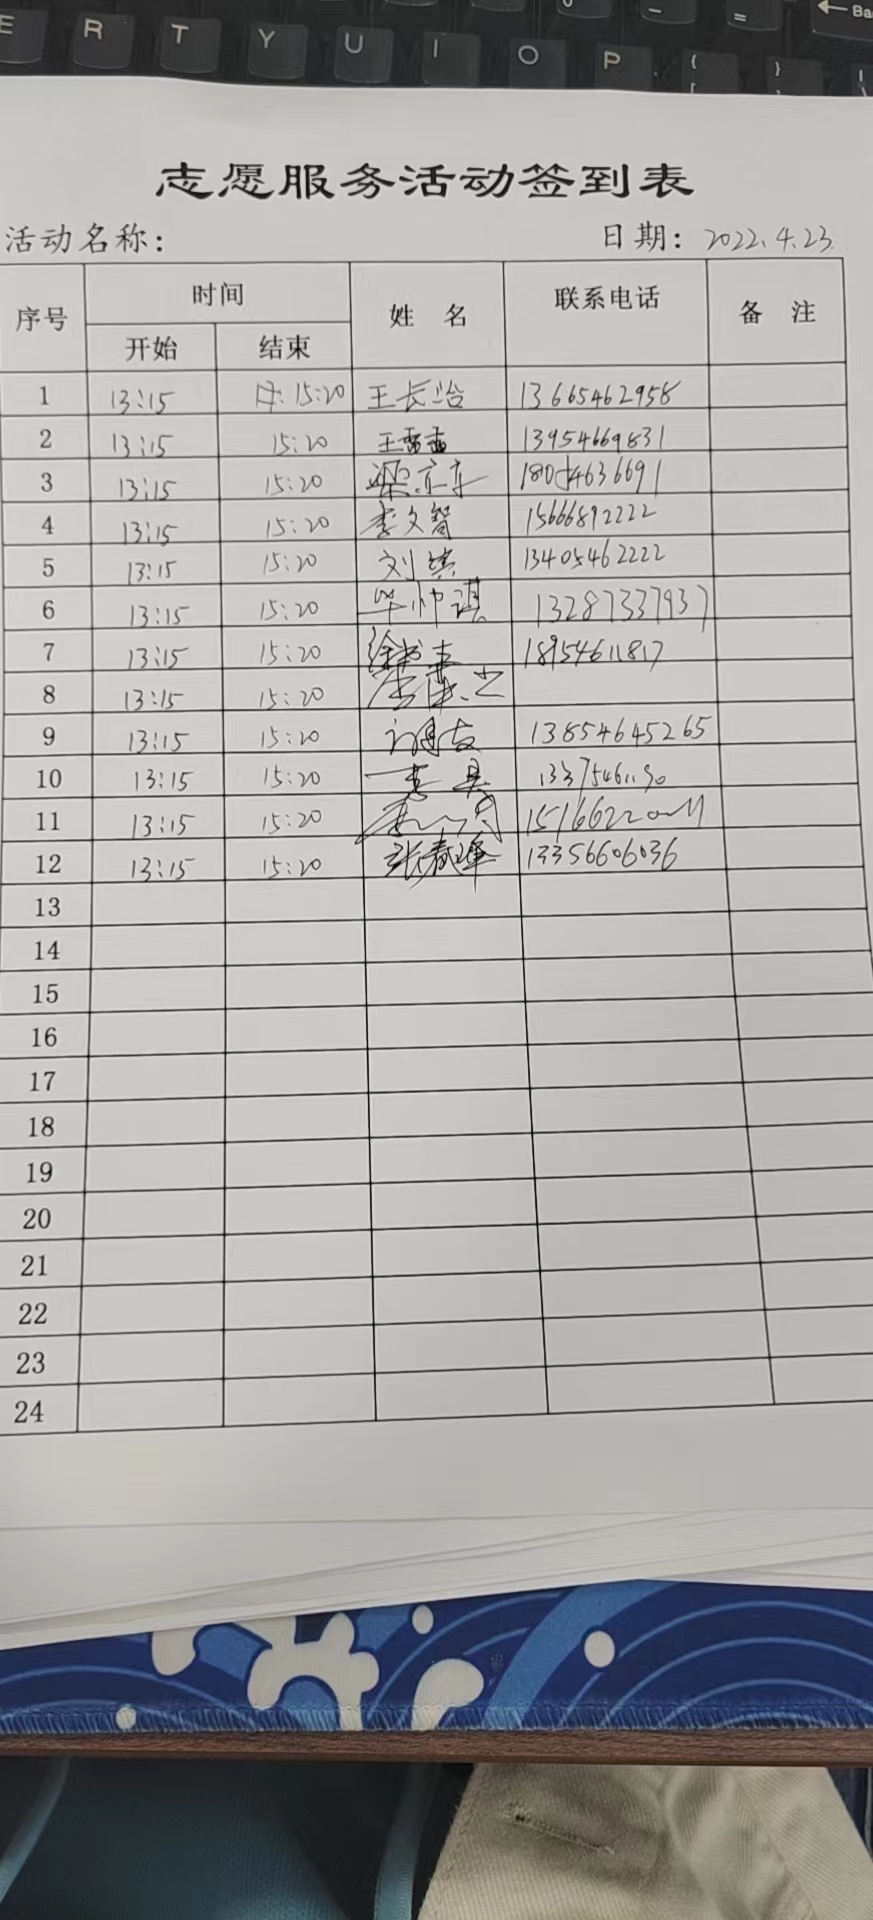 E R T Y U I O P
志愿服务活动签到表
活动名称: 日期: 2022.4.23
序号 时间 姓 名 联系电话 备 注
开始 结束
1 13:15 15:20 王长治 13665462958
2 13:15 15:20 王雷雷 13954669831
3 13:15 15:20
4 13:15 15:20 李文智 15666892222
5 13:15 15:20 刘 13405462222
6 13:15 15:20 华帅祺 13287337937
7 13:15 15:20 徐 18954611817
8 13:15 15:20
9 13:15 15:20 13854645265
10 13:15 15:20 13375461190
11 13:15 15:20
12 13:15 15:20 张春峰 13356606036
13
14
15
16
17
18
19
20
21
22
23
24